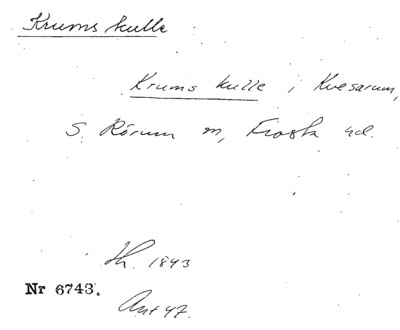 Krums kulle
Krums kulle i Kvesarum,
S. Rörum sn, Frosta hd.
Th. 1843
Nr 6743.
Ant 47.